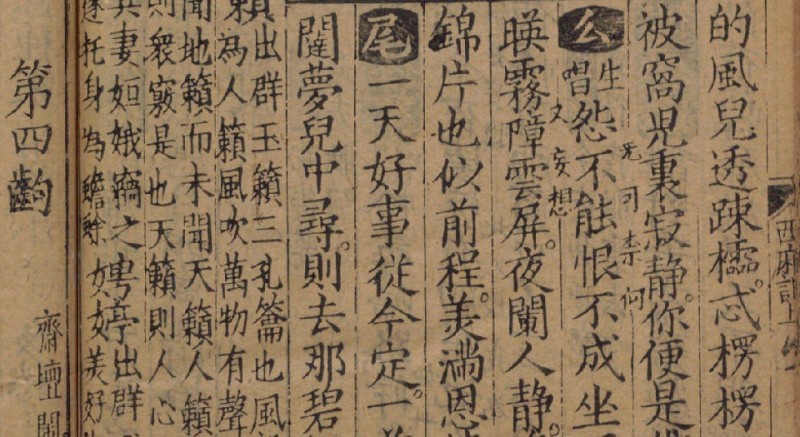 西廂記上
的風兒透踈櫺忒楞楞
被窩児裏寂静。你便是
无可柰何
么生唱怨不能恨不成坐
又妄想
暎霧障雲屏。夜闌人静。
錦片也似前程。美满恩
尾一天好事從今定。一
闥夢兒中尋。則去那碧
出群玉籟三孔籥也風
籟為人籟風吹萬物有聲
聞地籟而未聞天籟人籟
則衆竅是也天籟則人心
其妻姮娥竊之娉婷出群
遂托身為蟾蜍 美好
第四齣 齋壇鬧